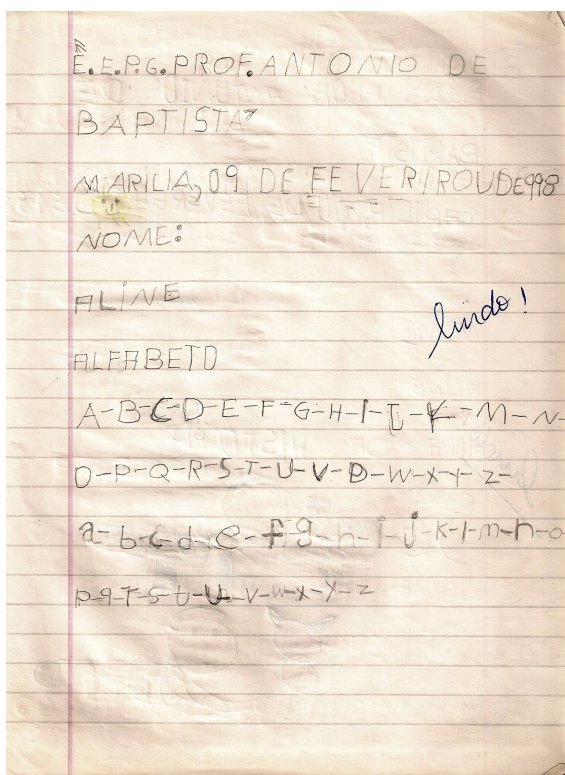 E.E.P.G. PROF. ANTONIO DE
BAPTISTA
MARILIA, 09 DE FEVERIROUDE998
NOME:
ALINE
lindo!
ALFABETO
A-B-C-D-E-F-G-H-I-J-K-M-N-
O-P-Q-R-S-T-U-V-D-W-X-Y-Z-
a-b-c-d-e-f-g-h-i-j-k-l-m-n-o
p-q-r-s-t-u-v-w-x-y-z